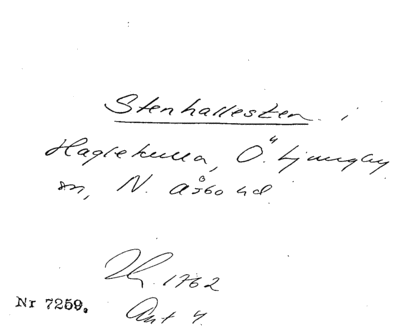 Stenhallesten i
Haglekulla, Ö. Ljungby
sn, N. Åsbo hd.
1762
Nr 7259.
Ant 4.